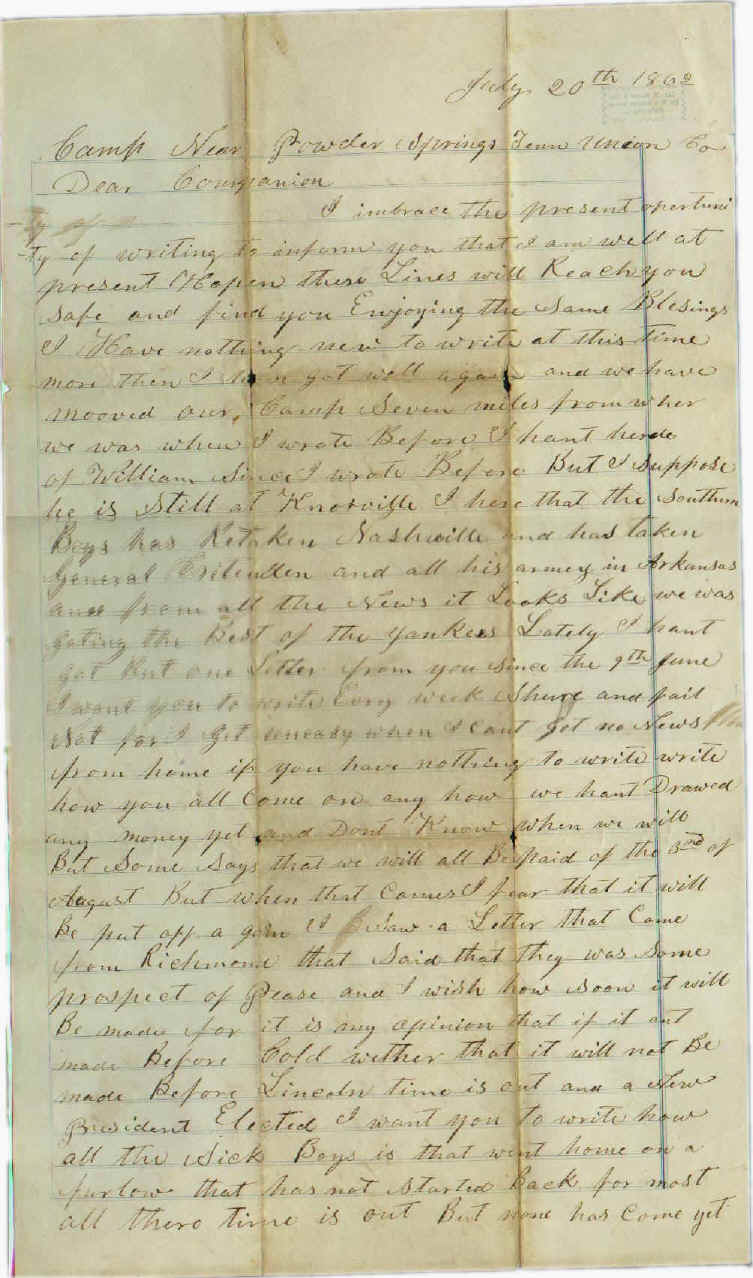 July 20th 1862
Camp Near Powder Springs Tenn Union Co
Dear Companion
I imbrace the present oportuni
-ty of writing to inform you that I am well at
present Hopen these Lines will Reach you
safe and find you Enjoying the Same Blesings
I Have nothing new to write at this time
more then I have got well again and we have
mooved our Camp Seven miles from wher
we was when I wrote Before I hant herde
of William Since I wrote Before But I suppose
he is still at Knoxville I here that the Southern
Boys has Retaken Nashville and has taken
General and all his armey in Arkansas
and from all the News it Looks Like we was
geting the Best of the yankees Lately I hant
got But one Letter from you since the 9th June
I want you to write Evry week Shure and fail
Not for I get uneasy when I cant get no News
from home if you have nothing to write write
how you all Come on any how we hant Drawed
any money yet and Dont Know when we will
But Some Says that we will all Be paid of the 3rd of
August But when that Comes I fear that it will
Be put off a gain I Saw a Letter that Came
from Richmond that Said that they was Some
prospect of Pease and I wish how soon it will
Be made for it is my opinion that if it ant
made Before Cold wether that it will not Be
made Before Lincoln time is out and a New
President Elected I want you to write how
all the Sick Boys is that went home on a
furlow that has not Started Back for most
all there time is out But none has Come yet